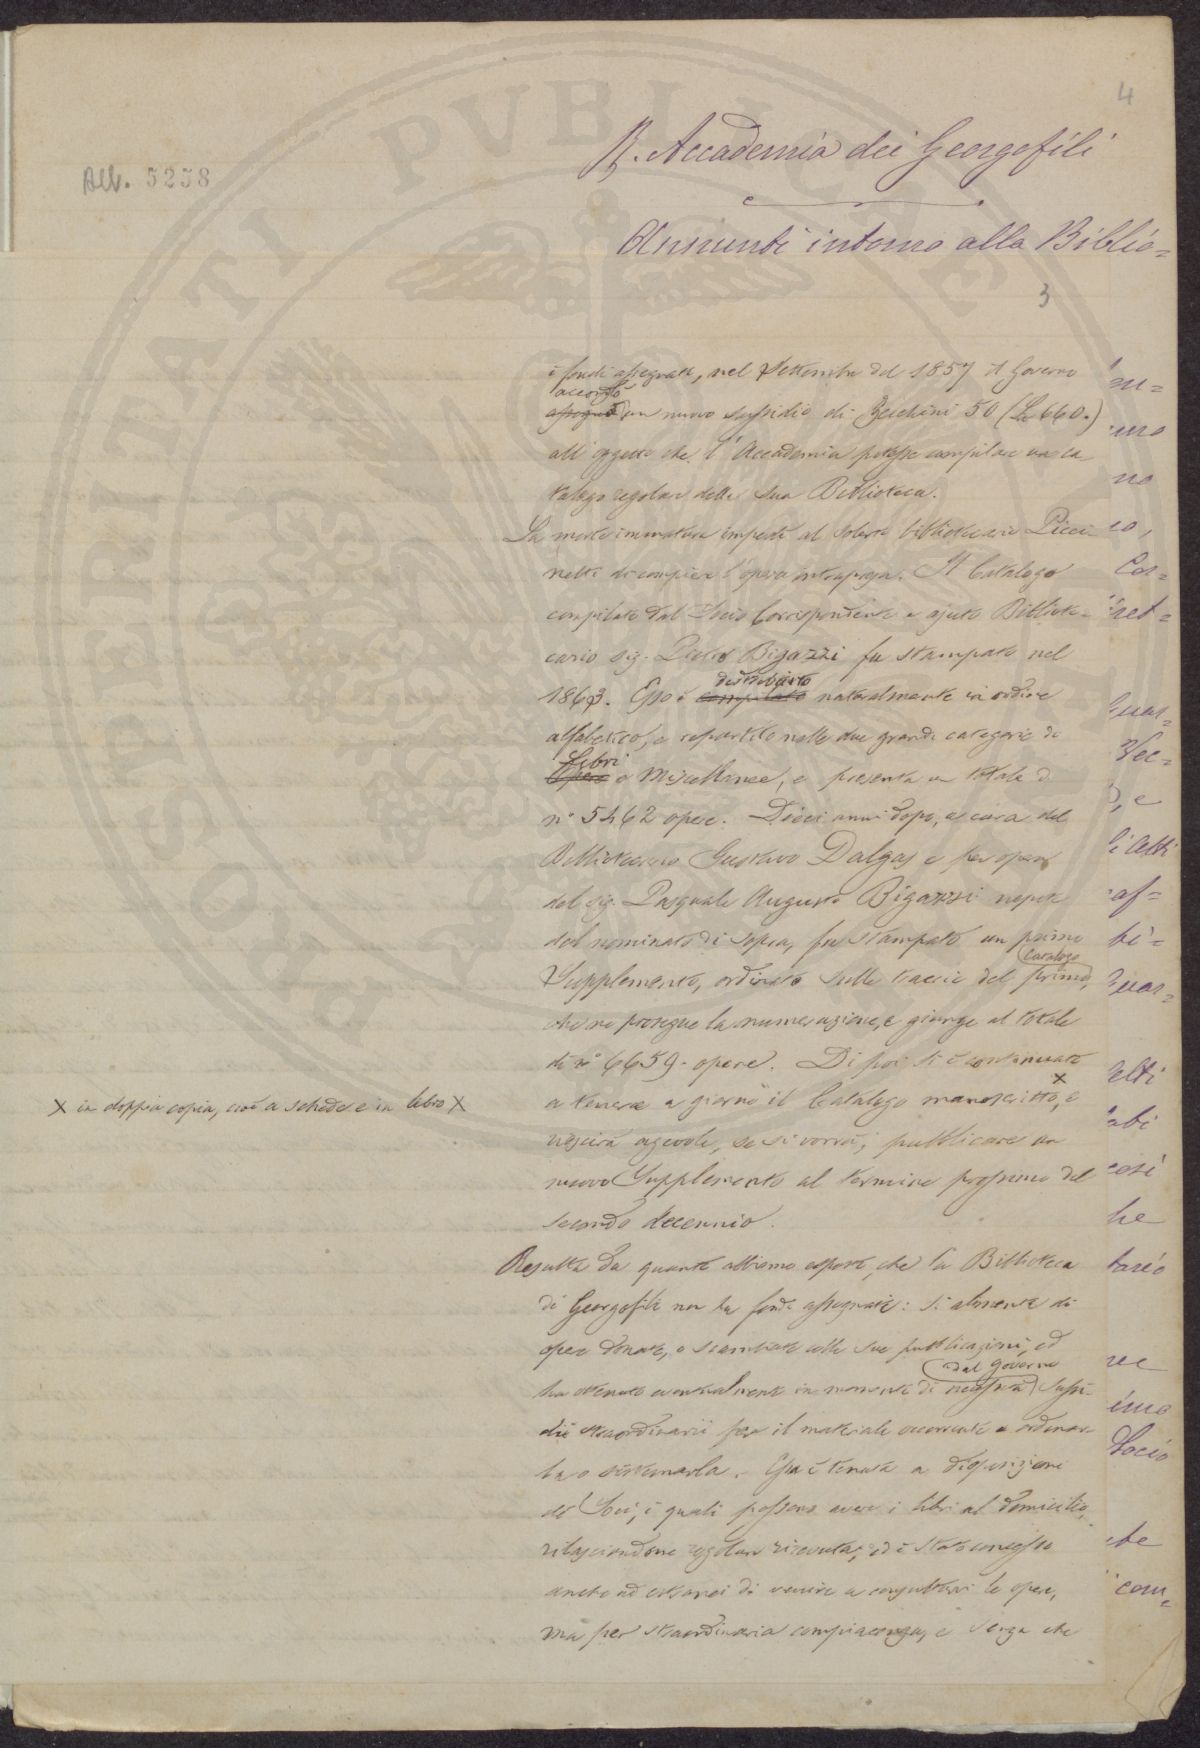 4
R. Accademia dei Georgofili
All. 5258
Annunti intorno alla Biblio=
3
i fondi assegnati, nel Settembre del 1857 il Governo
accordò
assegnò un nuovo sussidio di Zecchini 50 (L. 660.)
all'oggetto che l'Accademia potesse compilare un ca
talogo regolare della sua Biblioteca.
La morte immatura impedì al solerte bibliotecario Picci
nelli di compier l'opera intrapresa. Il Catalogo
compilato dal Socio Corrispondente e ajuto Bibliote=
cario sig. Pietro Bigazzi fu stampato nel
distribuito
1863. Esso è compilato naturalmente in ordine
alfabetico, e repartito nelle due grandi categorie di
Libri
Opere e Miscellanee, e presenta un totale di
n° 5462 opere. Dieci anni dopo, a cura del
Bibliotecario Gustavo Dalgas e per opera
del sig. Pasquale Augusto Bigazzi nepote
del nominato di sopra, fu stampato un primo
Catalogo
Supplemento, ordinato sulle traccie del primo,
che ne prosegue la numerazione, e giunge al totale
di n° 6659 opere. Di poi si è continuato
X in doppia copia, cioè a schede e in libro X
a tenere a giorno il Catalogo manoscritto X, e
riescirà agevole, se si vorrà, pubblicare un
nuovo Supplemento al termine prossimo del
secondo decennio.
Resulta da quanto abbiamo esposto, che la Biblioteca
di Georgofili non ha fondi assegnati: si alimenta di
opere donate, o scambiate colle sue pubblicazioni, ed
dal Governo
ha ottenuto eventualmente in momenti di necessità sussi=
dii straordinarii per il materiale occorrente a ordinar
la o sistemarla. Essa è tenuta a disposizione
dei Soci, i quali possono avere i libri al domicilio,
rilasciandone regolare ricevuta; ed è stato concesso
anche ad estranei di venire a consultarvi le opere,
ma per straordinaria compiacenza, e senza che